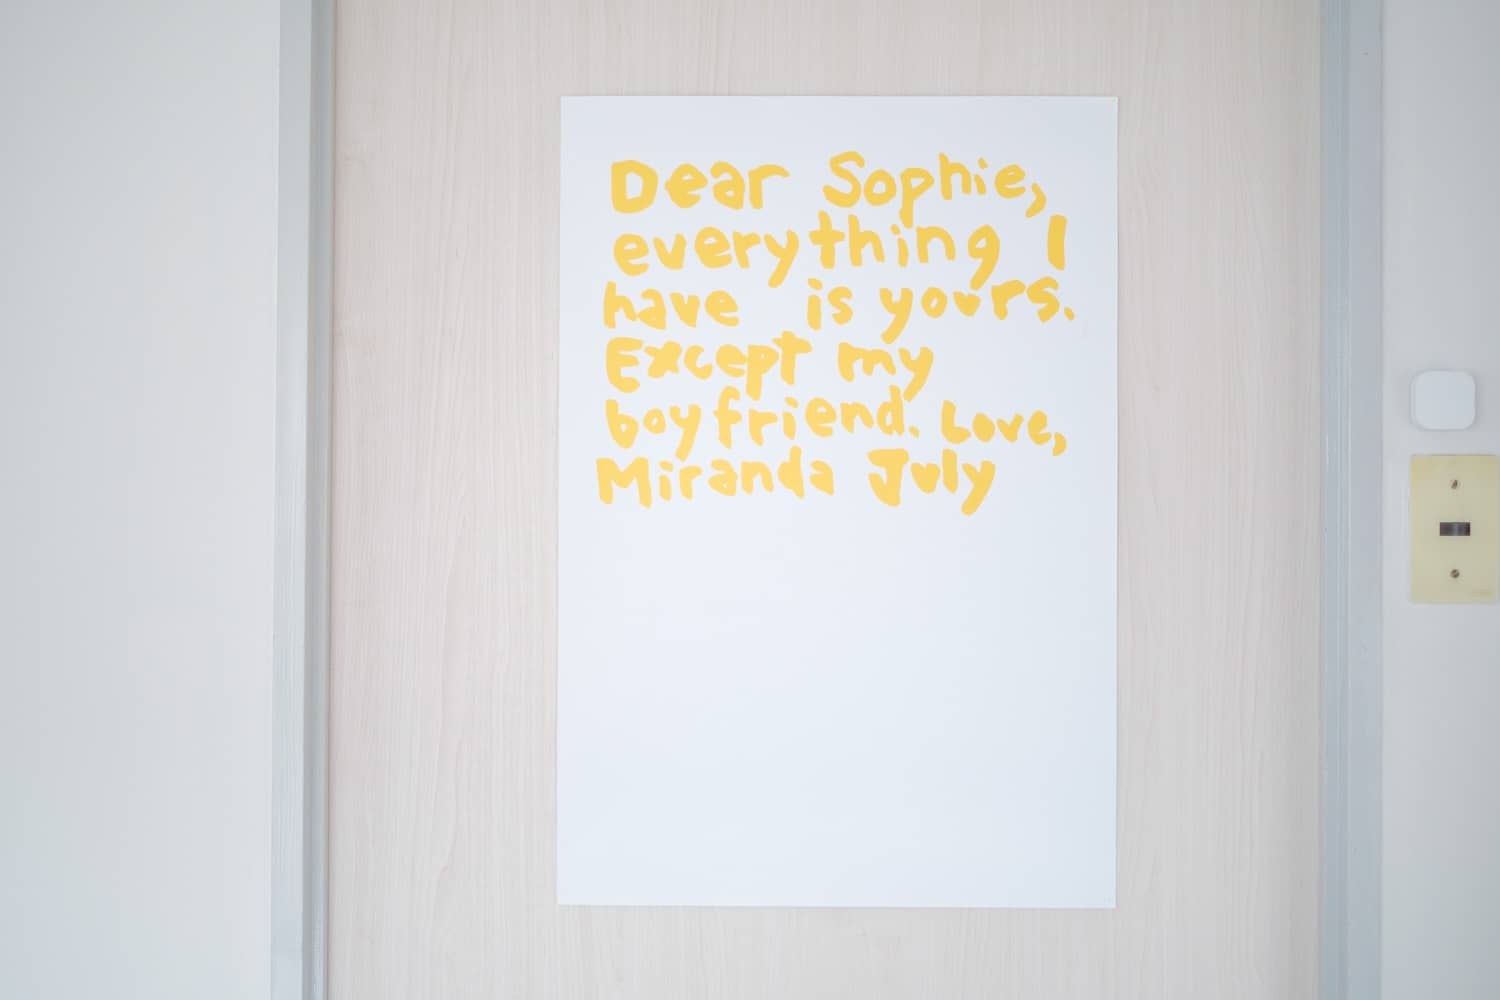 Dear Sophie,
everything I
have is yours.
Except my
boyfriend. Love,
Miranda July